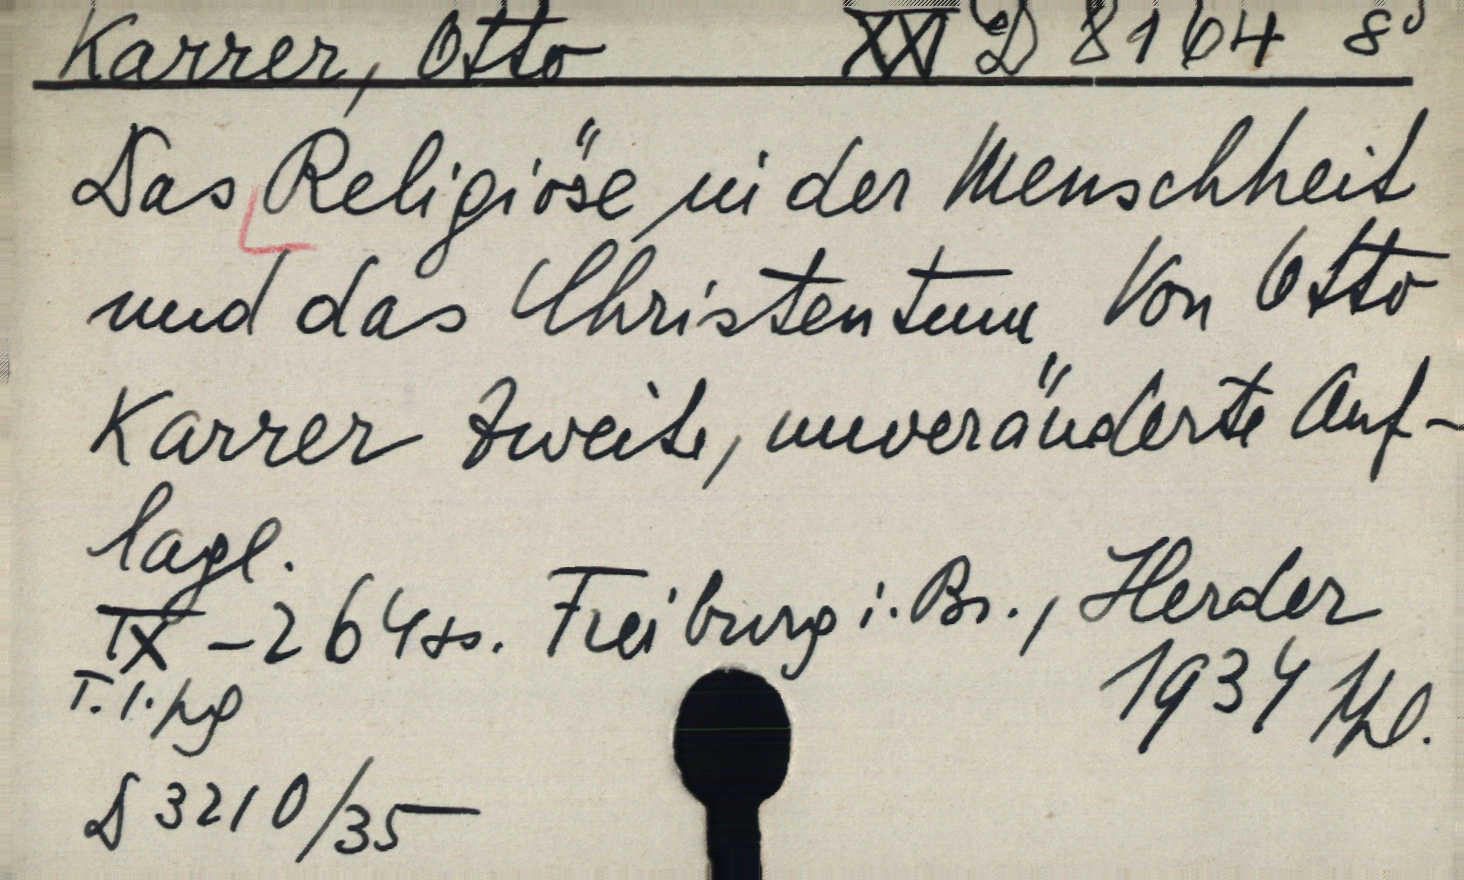 Karrer, Otto XXI D 8164 8°
Das Religiöse in der Menschheit
und das Christentum Von Otto
Karrer Zweite, unveränderte Auf-
lage.
IX - 264 ss. Freiburg i. Br., Herder
1934
T. I. pg
D 3210/35